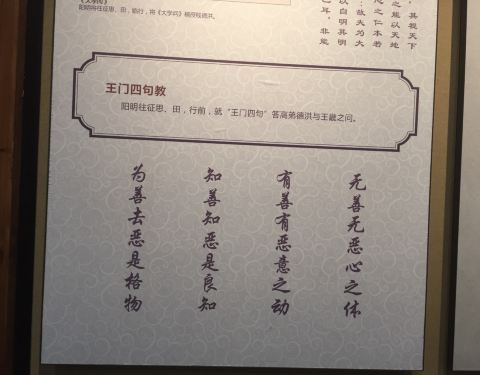 《大学问》
阳明往征思、田，临行，将《大学问》
其视天下
之能以天地
心之仁本若
：故夫为大
以自明其明
已耳，非能
王门四句教
阳明往征思、田，行前，就“王门四句”答高弟德洪与王畿之问。
无善无恶心之体
有善有恶意之动
知善知恶是良知
为善去恶是格物